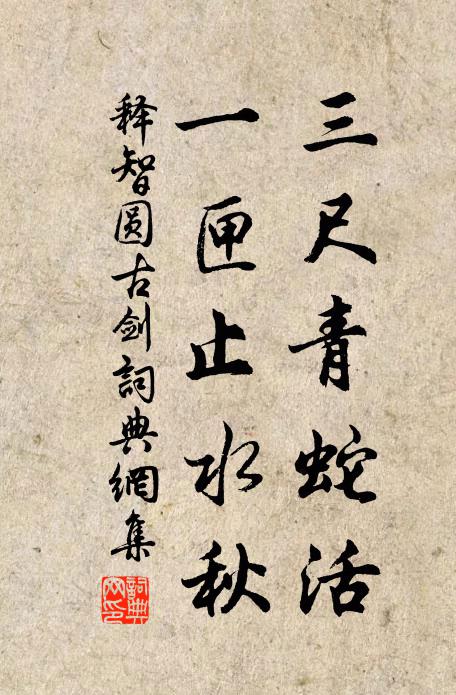 三尺青蛇活
一匣止水秋
释智圆古剑詞典網集
詞典